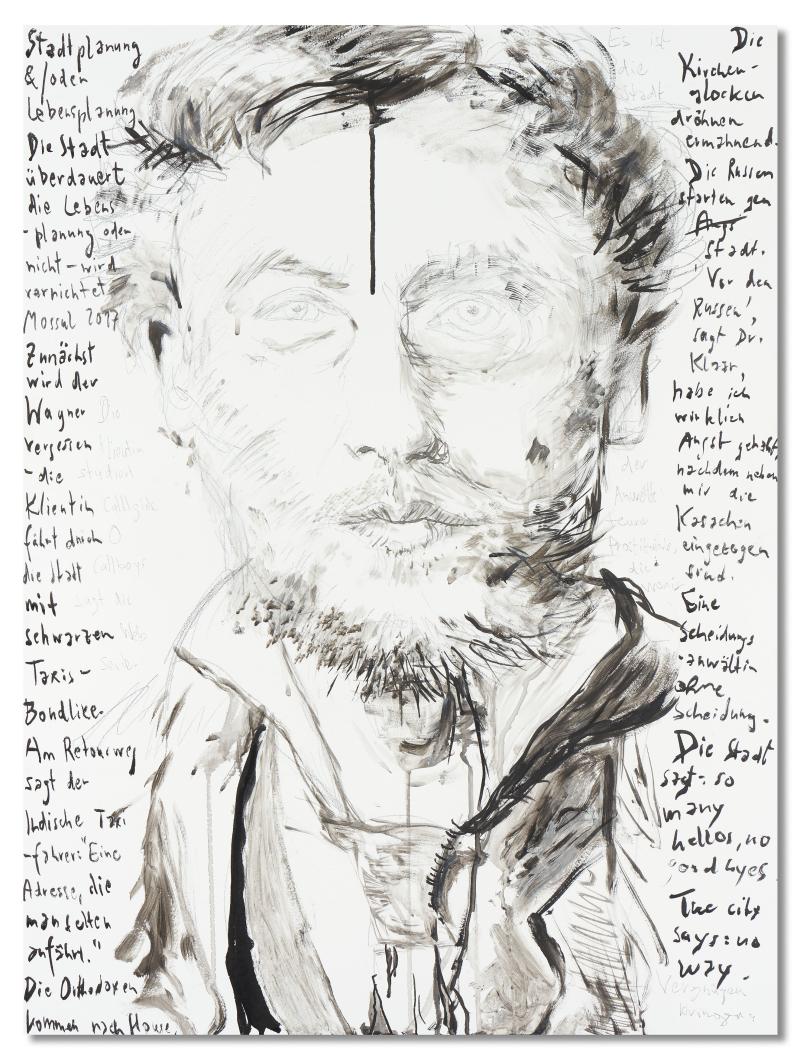 Stadtplanung
&/oder
Lebensplanung
Die Stadt
überdauert
die Lebens
-planung oder
nicht - wird
vernichtet
Mossul 2017
Zunächst
wird der
Wagner
vergessen
- die
Klientin
fährt durch
die Stadt
mit
schwarzen
Taxis -
Bondlike.
Am Retourweg
sagt der
Indische Taxi
-fahrer: "Eine
Adresse, die
man selten
anfährt."
Die Orthodoxen
kommen nach Hause.
Die
studiert
Callgirls
O
Callboys
sagt die
Es ist
die
Stadt
der
Anwälte
teure
die
Die
Kirchen-
glocken
dröhnen
ermahnend.
Die Russen
starten gen
Angs
Stadt.
'Vor den
Russen',
sagt Dr.
Klaar,
habe ich
wirklich
Angst gehabt,
nachdem neben
mir die
Kasachen
eingezogen
sind.
Eine
Scheidungs
-anwältin
ohne
Scheidung.
Die Stadt
sagt: so
many
hellos, no
goodbyes
The city
says: no
way.